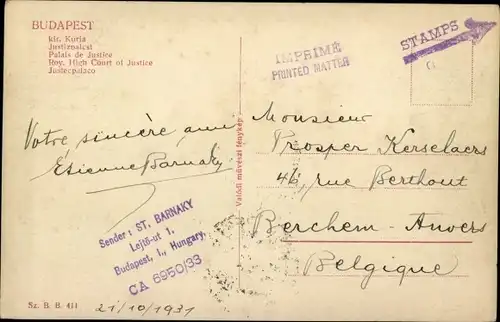 BUDAPEST
kir. Kúria
Justizpalast
Palais de Justice
Roy. High Court of Justice
Justecpalaco
IMPRIMÉ
PRINTED MATTER
STAMPS
Votre sincère ami
Etienne Barnaky
Sender: ST. BARNAKY
Lejtő-ut 1.
Budapest, I., Hungary,
CA 6950/33
Valódi művészi fénykép
Monsieur
Prosper Kerselaers
46, rue Berthout
Berchem-Anvers
Belgique
Sz. B. B. 411
21/10/1931